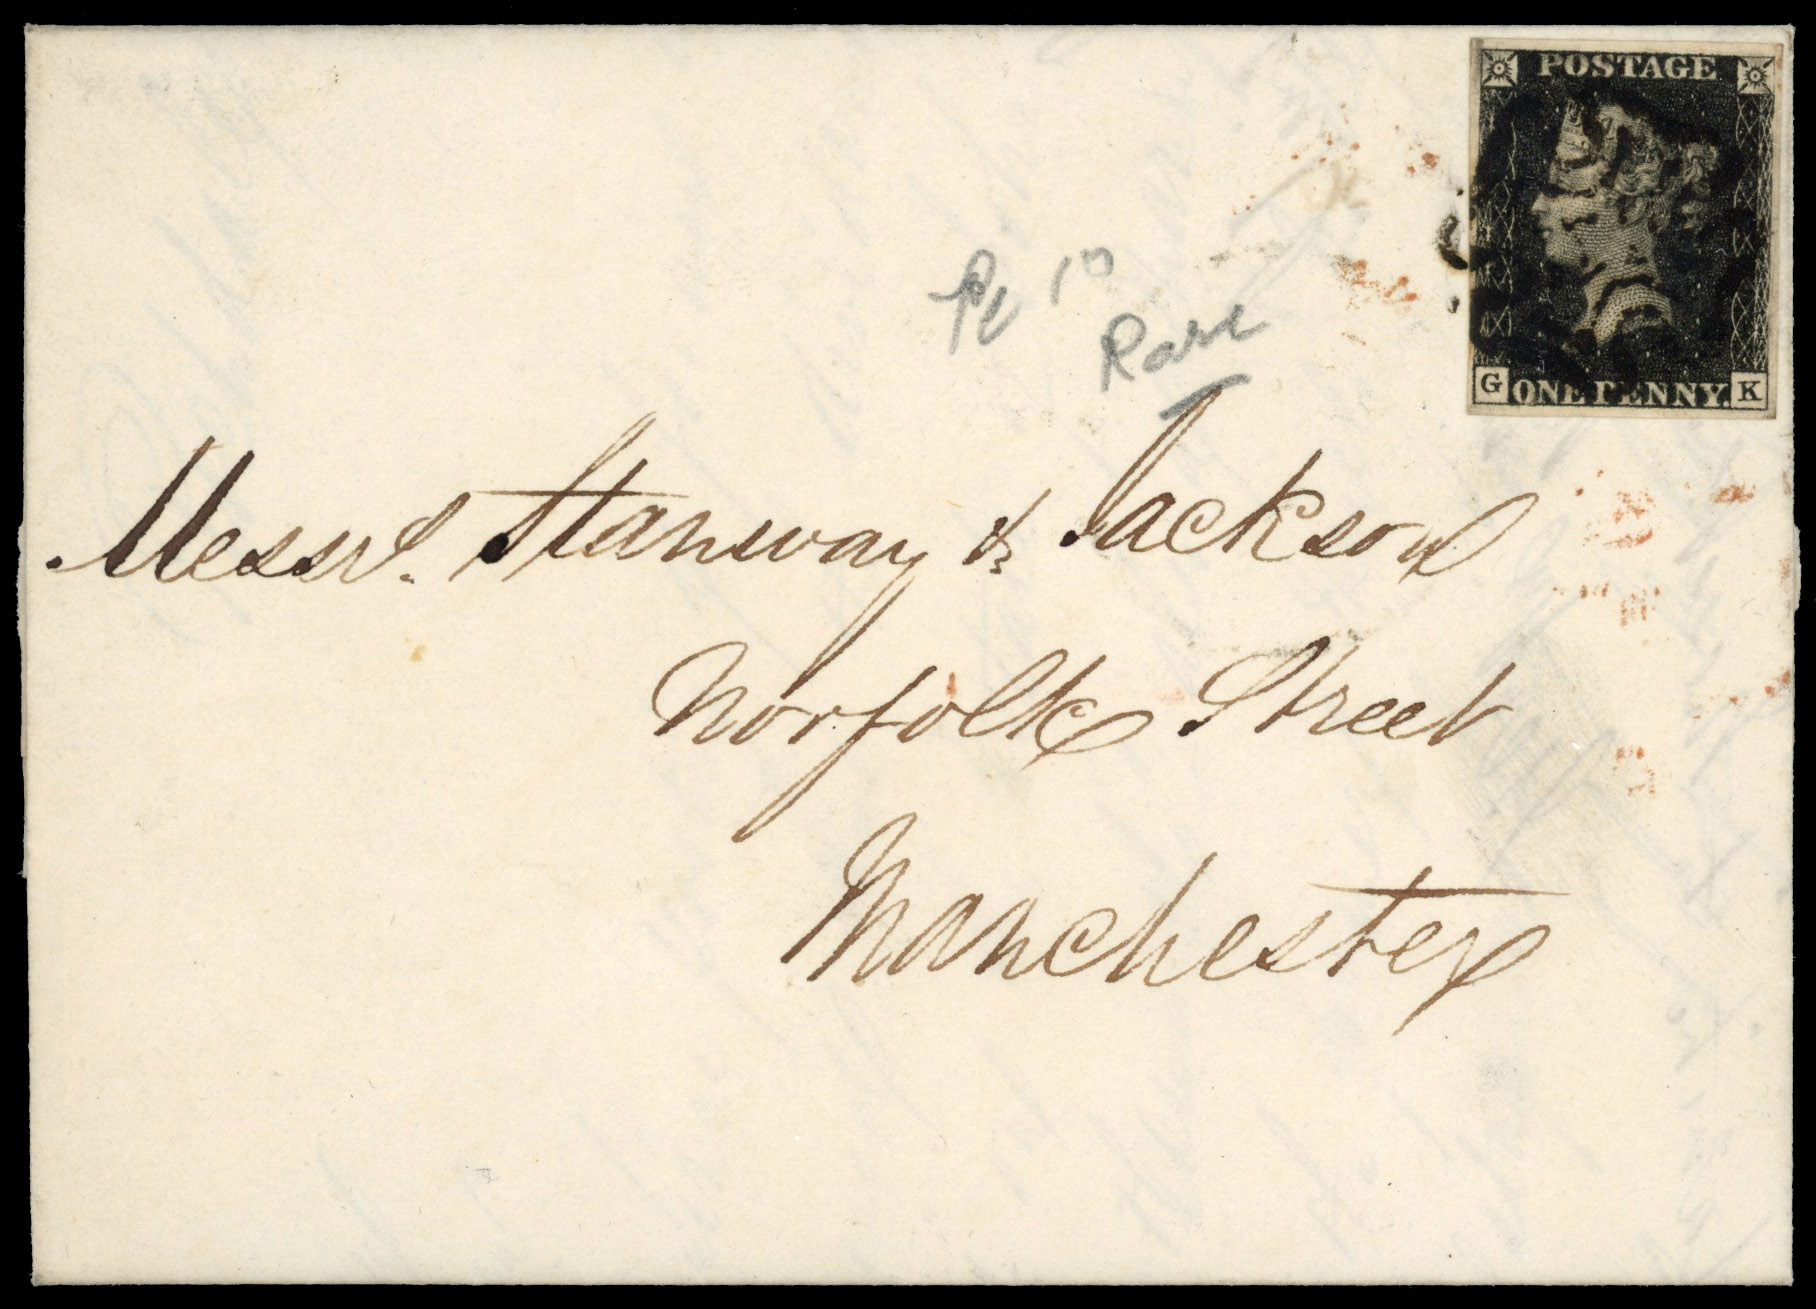 POSTAGE
G ONE PENNY. K
Pl 10
Rare
Messrs. Stanway & Jackson
Norfolk Street
Manchester